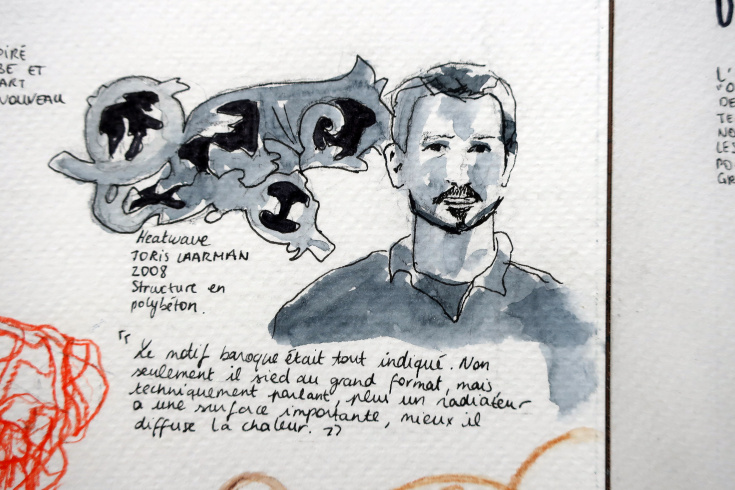 PIRÉ
BE ET
ART
NOUVEAU
Heatwave
JORIS LAARMAN
2008
Structure en
polybéton.
" Le motif baroque était tout indiqué. Non
seulement il sied au grand format, mais
techniquement parlant, plus un radiateur
a une surface importante, mieux il
diffuse la chaleur. "
L'
"O
DE
TE
NO
LES
PO
GR